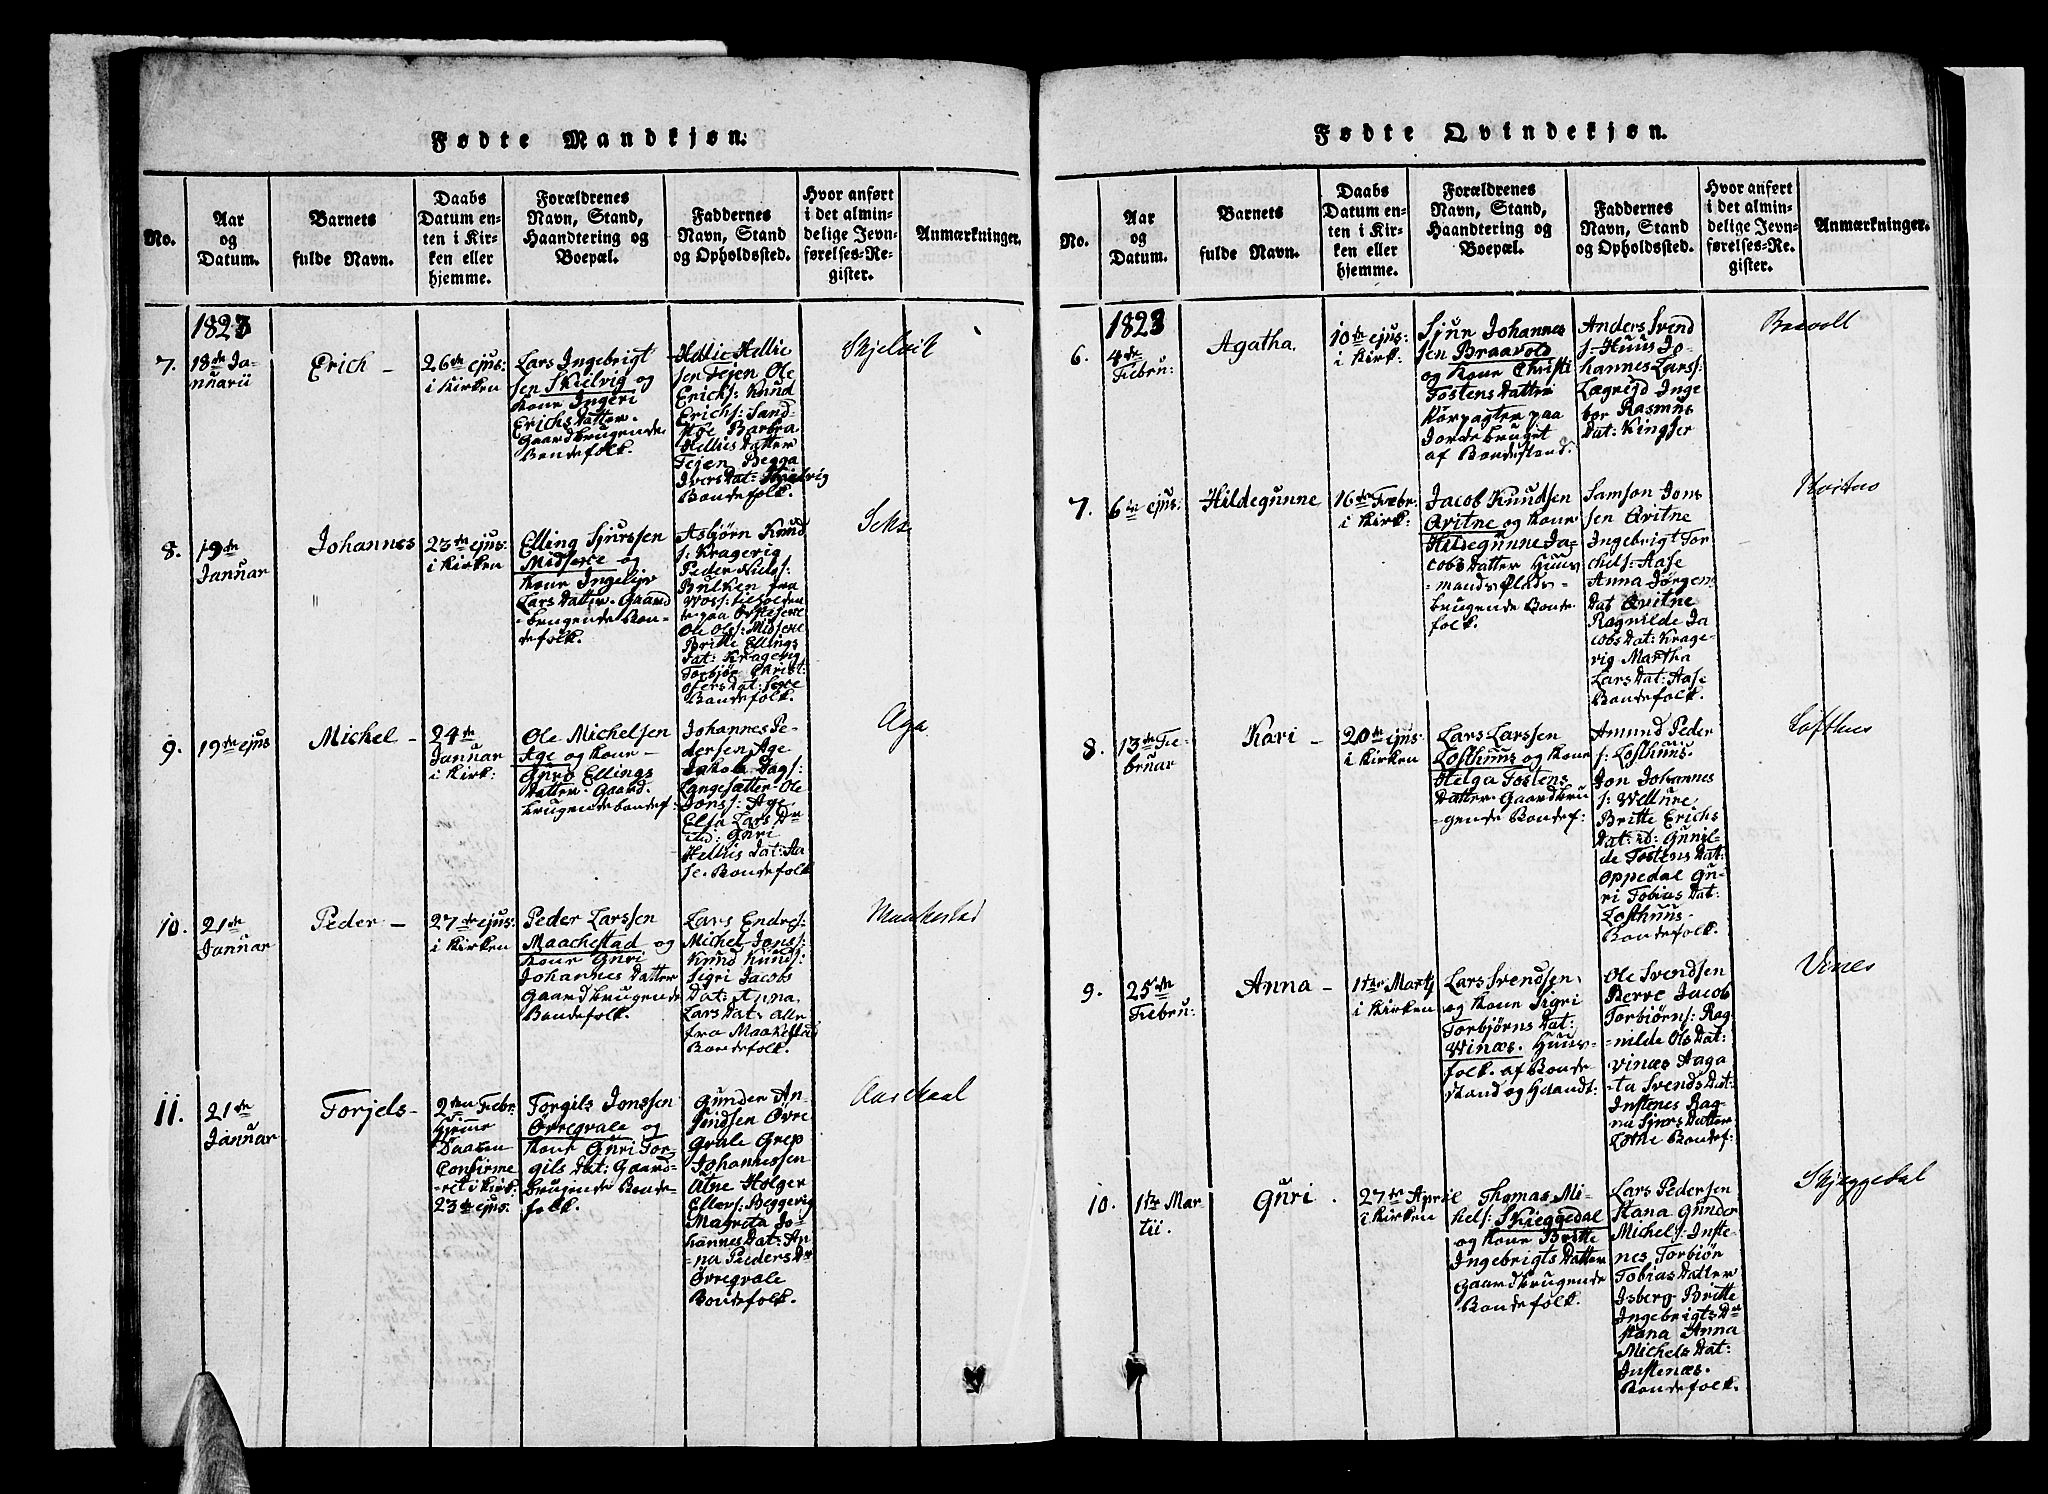 Fødte Mandkjøn.
No.
Aar
og
Datum.
Barnets
fulde Navn.
Daabs
Datum en-
ten i Kir-
ken eller
hjemme.
Forældrenes
Navn, Stand,
Haandtering og
Boepæl.
Faddernes
Navn, Stand
og Opholdssted.
Hvor anført
i det almin-
delige Jevn-
førelses-Re-
gister.
Anmærkninger.
1823
7.
18de Ja-
nuarii
Erich -
26de ejus:
i Kirken
Lars Ingebrigt
sen Skielvig og
Kone Ingeri
Erichs Datter.
Gaardbrugende
Bondefolk.
Hellie Hellie
sen Tejen Ole
Erichs: Knud
Erichs: Sand-
støe Barbra
Hellies Datter
Tejen Begga
Ivers Dat: Skielvig
Bondefolk.
Skjelvik
8.
19de
Januar
Johannes
23de ejus:
i Kirken
Elling Sjurssen
Midsexe og
Kone Ingelev
Lars Datter. Gaard
brugende Bon-
defolk.
Asbjørn Knud
s: Kragerig
Peder Niels:
Bulken fra
Woss:
Ole Ols: Midsexe
Britte Ellings
Dat: Kragevig
Torbjør Christ
ofers Dat: Sexe
Bondefolk.
Sekse
9.
19de ejus
Michel -
24de
Januar
i Kirk:
Ole Michelsen
Age og Kone -
Guro Ellings
Datter. Gaard.
brugende bondef:
Johannes Pe-
dersen Age
Jakob Dags:
Langesætter. Ole
Jons: Age
Elsa Lars Dr
ibd: Guri
Hellies Dat: Aa
se. Bondefolk
Aga
10.
21de
Januar
Peder -
27de ejus:
i Kirken
Peder Larssen
Maachestad og
Kone Guri
Johannes Datter
Gaardbrugende
Bondefolk.
Lars Endres:
Michel Jons:
Knud Knuds:
Sigri Jacobs
Dat: Anna
Lars Dat: alle
fra Maakestad
Bondefolk.
Maakestad
11.
21de
Januar
Torjels -
2den Febr:
hjeme
Daaben
Confirme
ret i Kirk:
23de ejus:
Torgils Jonssen
Øvregvale og
Kone Guri Tor-
gils Dat: Gaard-
brugende Bonde-
folk.
Gunder An-
findsen Øvre
Qvale Grep
Johannessen
Utne Holger
Ellens: Beggevig
Magrita Jo-
hannes Dat: An-
na Peders Dr
Øvreqvale
Bondefolk.
Fødte Qvindekjøn.
No.
Aar
og
Datum.
Barnets
fulde Navn.
Daabs
Datum en-
ten i Kir-
ken eller
hjemme.
Forældrenes
Navn, Stand,
Haandtering og
Boepæl.
Faddernes
Navn, Stand
og Opholdssted.
Hvor anført
i det almin-
delige Jevn-
førelses-Re-
gister.
Anmærkninger.
1823
6.
4de
Febru:
Agatha.
10de ejus:
i Kirk:
Sjur Johannes
sen Braavold
og Kone Christi
Tostens Datter
Korpagter paa
Jordebruget
af Bondestand.
Anders Svend
s: Huus Jo-
hannes Lars:
Lægreid Inge
bor Rasmus
Dat: Kingser
Braavoll
7.
6te ejus:
Hildegunne
16de Febr:
i Kirk:
Jacob Knudsen
Qvitne og Kone
Hildegunne Ja-
cobs Datter Huus
mands Plads-
brugende Bonde
folk.
Samson Jons
sen Qvitne
Ingebrigt Tor
chels: Aase
Anna Jørgen
Dat Qvitne
Ragnilde Ja
cobs Dat: Krage-
vig Martha
Lars Dat: Aase
Bondefolk.
8.
13de Fe-
bruar
Kari -
20de ejus:
i Kirken
Lars Larssen
Lofthuus og Kone
Helga Tostens
Datter. Gaardbru
gende Bondef:
Amund Peder
s: Lofthuus.
Jon Johannes
s: Wellure
Britte Erichs
Dat: ibd: Gunil-
de Tostens Dat:
Oppedal Gu-
ri Tobias Dat:
Lofthuus.
Bondefolk.
Lofthus
9.
25de
Febru:
Anna -
1ste Martj
i Kirken
Lars Svendsen
og Kone Sigri
Torbjørns Dat:
Winæs. Huus-
folk. af Bonde
stand og Haandt:
Ole Svendsen
Berre Jacob
Torbiørns: Rag
nilde Ols Dat:
Vinæs Aaga
ta Svends Dat:
Instenes Rag-
na Sjurs Datter
Lothe Bondef:
Vines
10.
1ste Mar-
tii.
Guri.
27de April
i Kirken
Thomas Mi-
chels: Skieggedal
og Kone Britte
Ingebrigts Datter
Gaardbrugende
Bondefolk.
Lars Pedersen
Stana Gunder
Michels: Inste-
nes Torbiør
Tobias Datter
Isberg Britte
Ingebrigts Dr
Stana Anna
Michels Dat:
Instenæs.
Bondefolk.
Skjeggedal